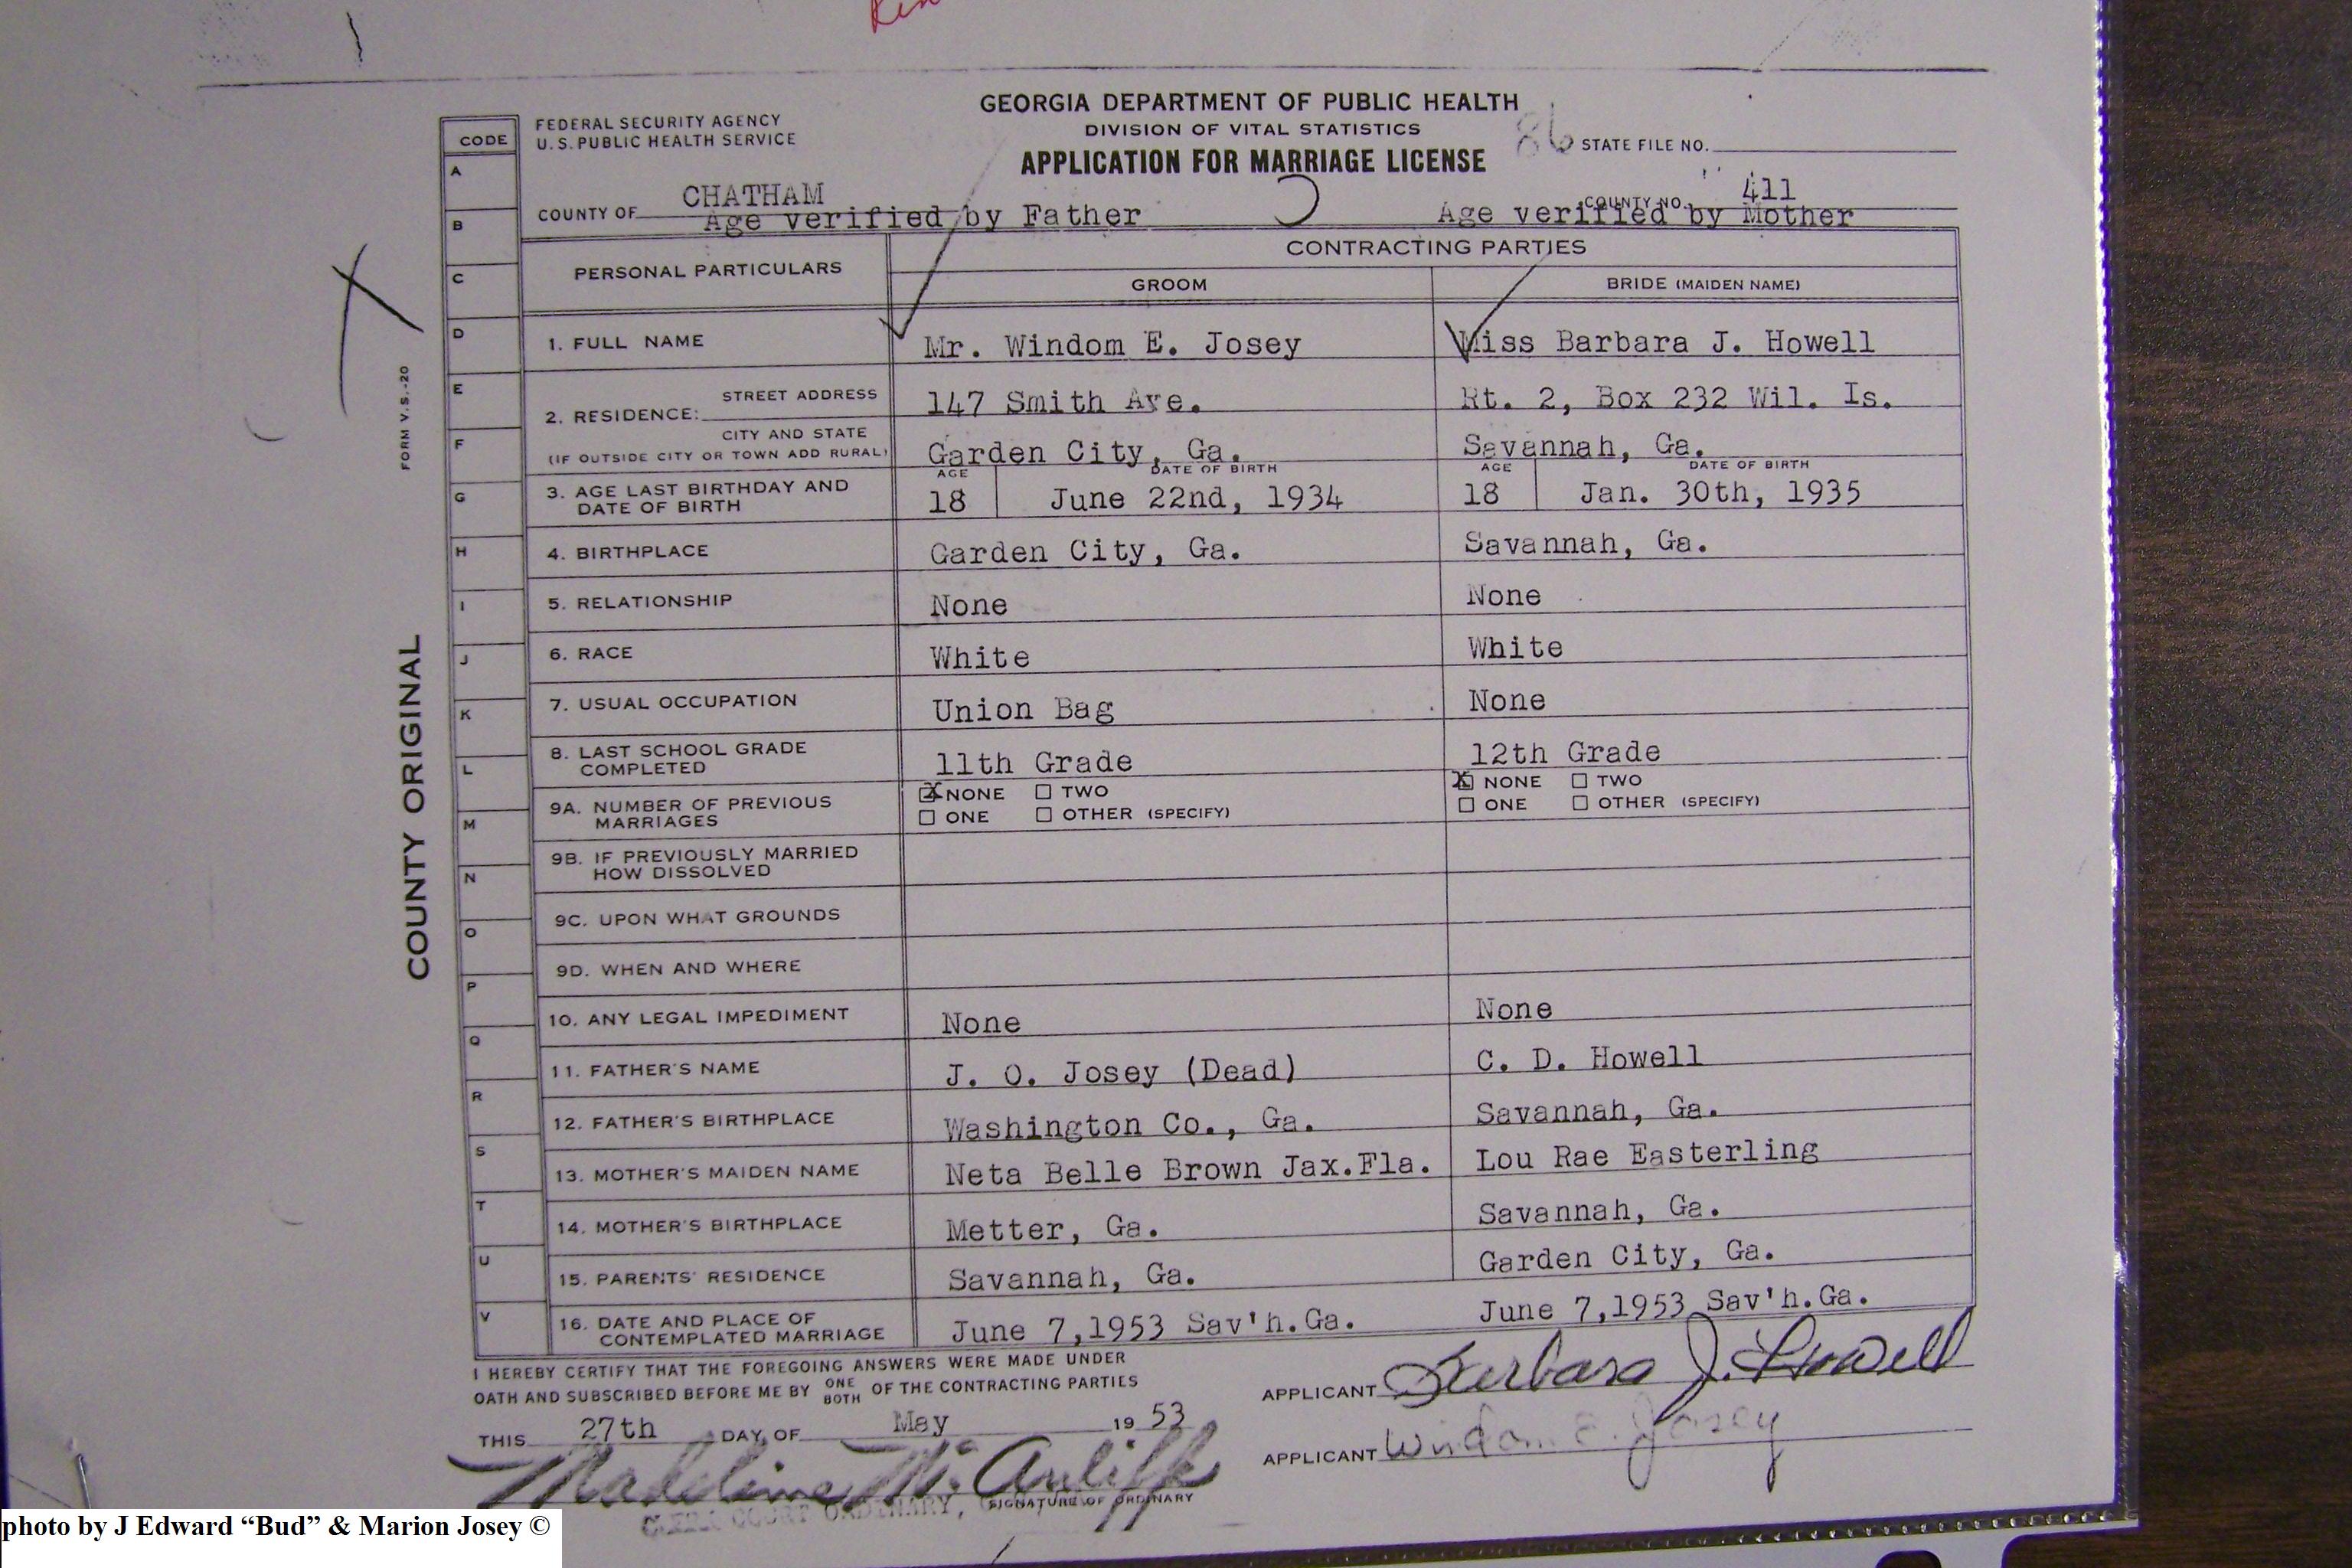 GEORGIA DEPARTMENT OF PUBLIC HEALTH
FEDERAL SECURITY AGENCY
U.S. PUBLIC HEALTH SERVICE
DIVISION OF VITAL STATISTICS
86 STATE FILE NO.
APPLICATION FOR MARRIAGE LICENSE
COUNTY OF CHATHAM
COUNTY NO. 411
Age verified by Father Age verified by Mother
CODE
A
B
C
D
E
F
G
H
I
J
K
L
M
N
O
P
Q
R
S
T
U
V
FORM V.S.-20
COUNTY ORIGINAL
PERSONAL PARTICULARS
CONTRACTING PARTIES
GROOM BRIDE (MAIDEN NAME)
1. FULL NAME Mr. Windom E. Josey Miss Barbara J. Howell
2. RESIDENCE: STREET ADDRESS 147 Smith Ave. Rt. 2, Box 232 Wil. Is.
CITY AND STATE
(IF OUTSIDE CITY OR TOWN ADD RURAL) Garden City, Ga. Savannah, Ga.
AGE DATE OF BIRTH AGE DATE OF BIRTH
3. AGE LAST BIRTHDAY AND
DATE OF BIRTH 18 June 22nd, 1934 18 Jan. 30th, 1935
4. BIRTHPLACE Garden City, Ga. Savannah, Ga.
5. RELATIONSHIP None None
6. RACE White White
7. USUAL OCCUPATION Union Bag None
8. LAST SCHOOL GRADE
COMPLETED 11th Grade 12th Grade
9A. NUMBER OF PREVIOUS
MARRIAGES
X NONE TWO X NONE TWO
ONE OTHER (SPECIFY) ONE OTHER (SPECIFY)
9B. IF PREVIOUSLY MARRIED
HOW DISSOLVED
9C. UPON WHAT GROUNDS
9D. WHEN AND WHERE
10. ANY LEGAL IMPEDIMENT None None
11. FATHER'S NAME J. O. Josey (Dead) C. D. Howell
12. FATHER'S BIRTHPLACE Washington Co., Ga. Savannah, Ga.
13. MOTHER'S MAIDEN NAME Neta Belle Brown Jax.Fla. Lou Rae Easterling
14. MOTHER'S BIRTHPLACE Metter, Ga. Savannah, Ga.
15. PARENTS' RESIDENCE Savannah, Ga. Garden City, Ga.
16. DATE AND PLACE OF
CONTEMPLATED MARRIAGE June 7,1953 Sav'h.Ga. June 7,1953 Sav'h.Ga.
I HEREBY CERTIFY THAT THE FOREGOING ANSWERS WERE MADE UNDER
OATH AND SUBSCRIBED BEFORE ME BY ONE BOTH OF THE CONTRACTING PARTIES
APPLICANT Barbara J. Howell
THIS 27th DAY OF May 19 53
APPLICANT Windom E. Josey
Madeline McAuliffe
SIGNATURE OF ORDINARY
CLERK COURT ORDINARY,
photo by J Edward “Bud” & Marion Josey ©